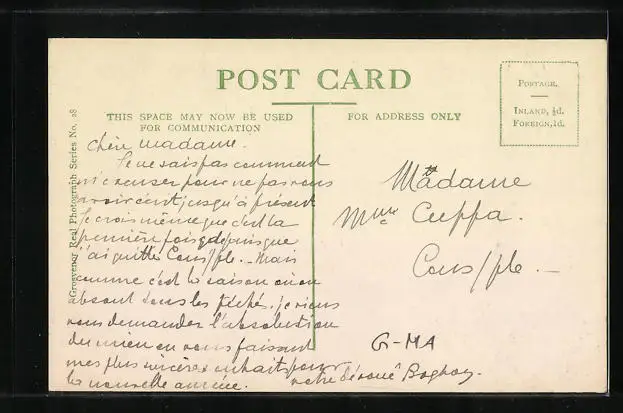 POST CARD
THIS SPACE MAY NOW BE USED
FOR COMMUNICATION
FOR ADDRESS ONLY
POSTAGE.
INLAND, ½d.
FOREIGN, 1d.
Grosvenor Real Photograph Series No. 28
Chère madame.
Je ne sais pas comment
m'excuser pour ne pas vous
avoir écrit jusqu'à présent
Je crois même que c'est la
première fois depuis que
j'ai quitté Cons/ple. - Mais
comme c'est la saison où on
absout tous les péchés. je viens
vous demander l'absolution
du mien en vous faisant
mes plus sincères souhaits pour
la nouvelle année.
votre dévoué
Madame
Mme Cuppa.
Cons/ple. -
G-MA